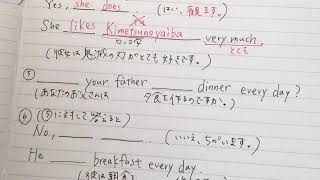 Yes, she does. (はい、観ます。)
She likes Kimetsunoyaiba very much.
ローマ字 とても
(彼女は鬼滅の刃がとても好きです。)
⑤ your father dinner every day?
(あなたのお父さんは 夕食を作るのですか。)
⑥ (⑤に対して答えると)
No, . (いいえ、ちがいます。)
He breakfast every day.
(彼は朝食